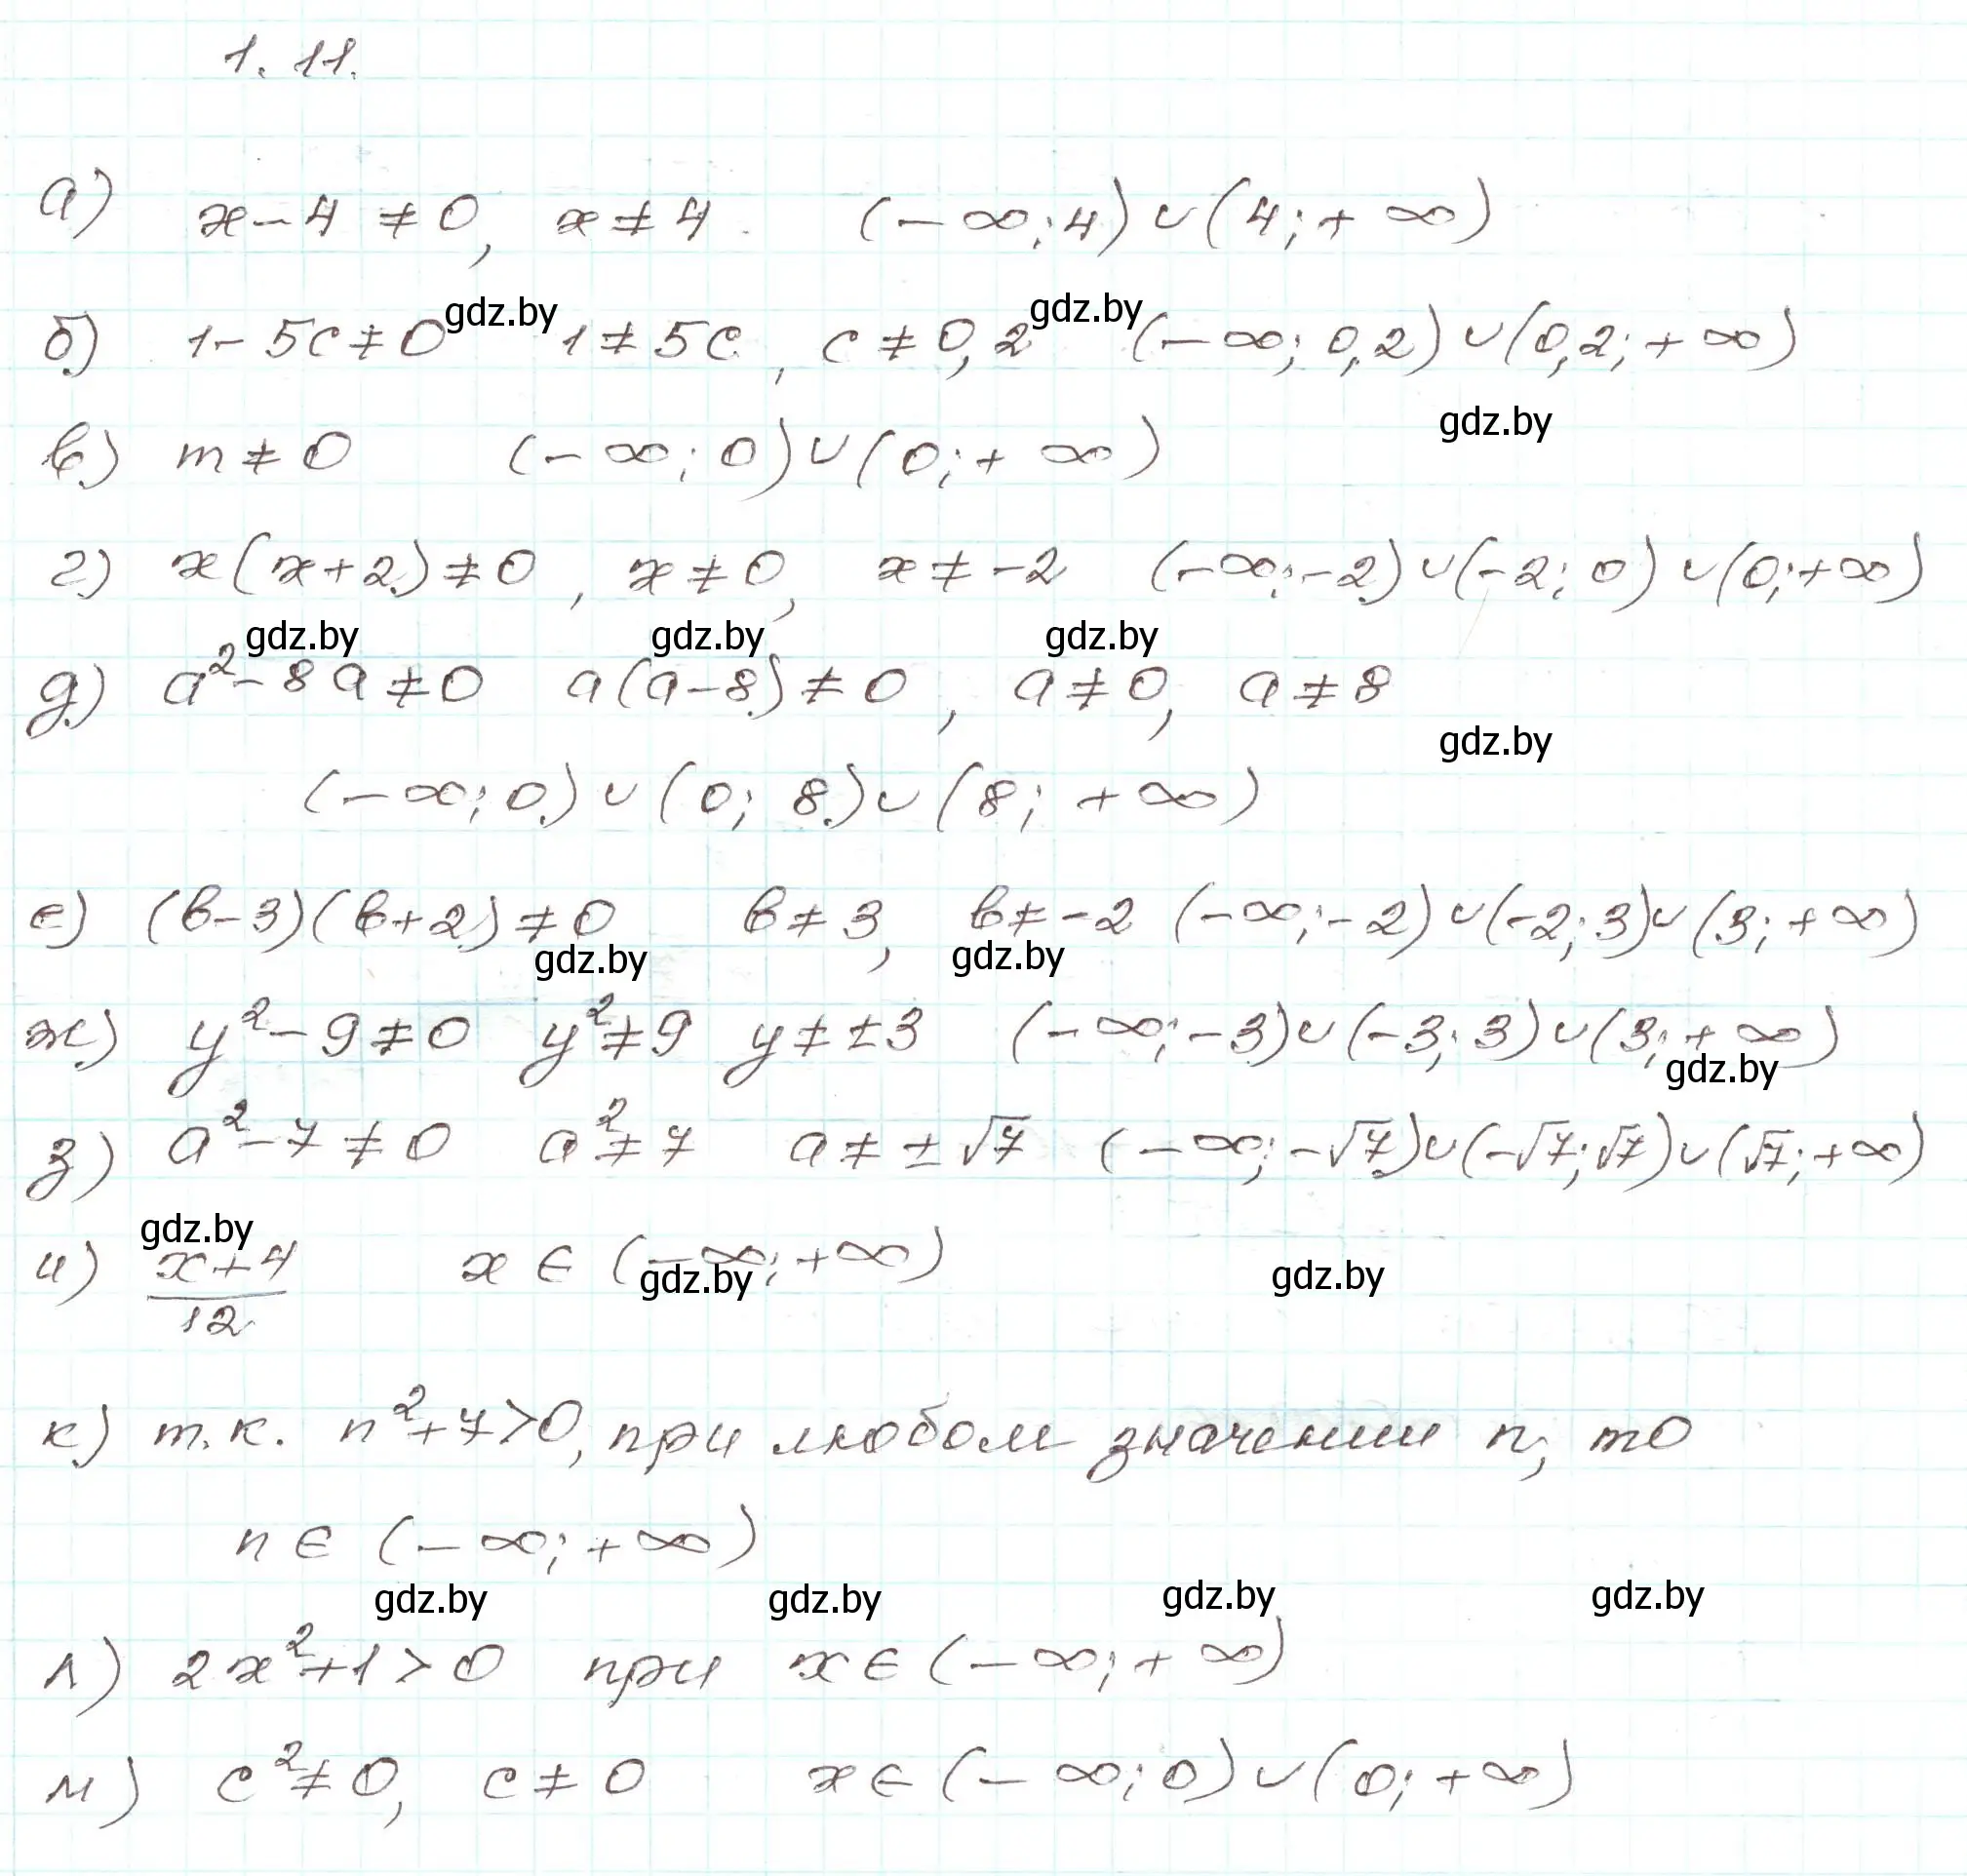 1.11.
а) x - 4 ≠ 0, x ≠ 4. (-∞; 4) ∪ (4; +∞)
gdz.by gdz.by
б) 1 - 5c ≠ 0 1 ≠ 5c, c ≠ 0,2 (-∞; 0,2) ∪ (0,2; +∞)
gdz.by
в) m ≠ 0 (-∞; 0) ∪ (0; +∞)
г) x(x+2) ≠ 0, x ≠ 0, x ≠ -2 (-∞; -2) ∪ (-2; 0) ∪ (0; +∞)
gdz.by gdz.by gdz.by
д) a² - 8a ≠ 0 a(a-8) ≠ 0, a ≠ 0, a ≠ 8
gdz.by
(-∞; 0) ∪ (0; 8) ∪ (8; +∞)
е) (b-3)(b+2) ≠ 0 b ≠ 3, b ≠ -2 (-∞; -2) ∪ (-2; 3) ∪ (3; +∞)
gdz.by gdz.by
ж) y² - 9 ≠ 0 y² ≠ 9 y ≠ ±3 (-∞; -3) ∪ (-3; 3) ∪ (3; +∞)
gdz.by
з) a² - 7 ≠ 0 a² ≠ 7 a ≠ ±√7 (-∞; -√7) ∪ (-√7; √7) ∪ (√7; +∞)
gdz.by
и) x+4 x ∈ (-∞; +∞)
12
gdz.by gdz.by
к) т.к. n² + 7 > 0, при любом значении n, то
n ∈ (-∞; +∞)
gdz.by gdz.by gdz.by gdz.by
л) 2x² + 1 > 0 при x ∈ (-∞; +∞)
м) c² ≠ 0, c ≠ 0 x ∈ (-∞; 0) ∪ (0; +∞)